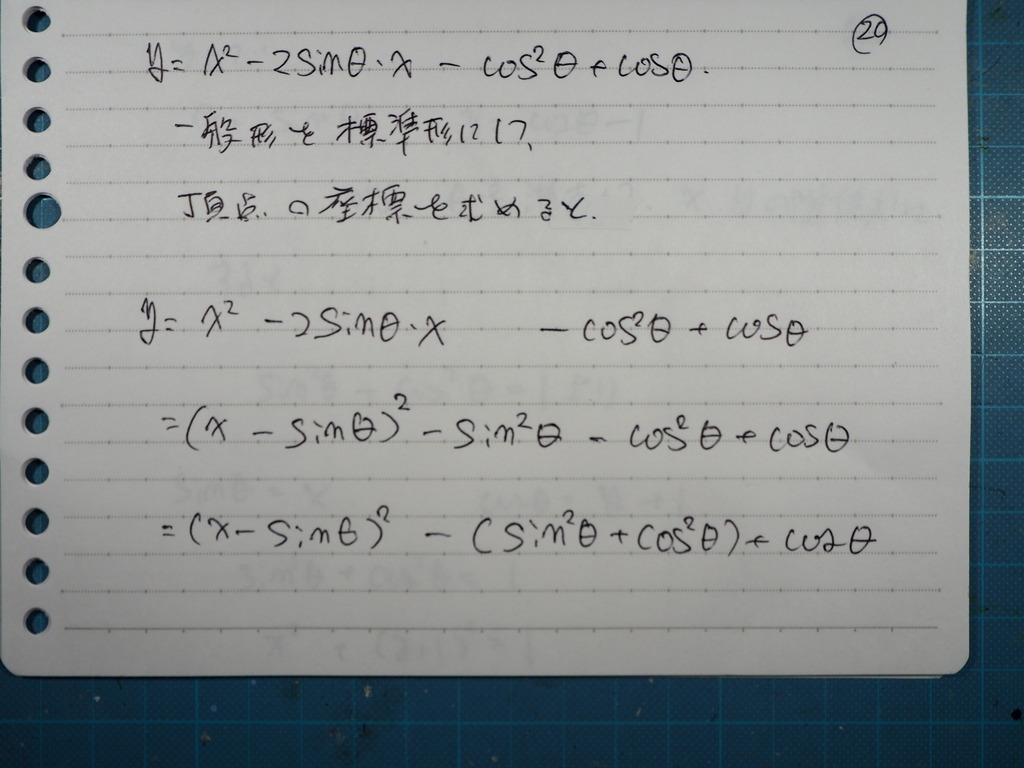 ㉙
y = x² - 2sinθ・x - cos²θ + cosθ.
一般形を標準形にして、
頂点の座標を求めると.
y = x² - 2sinθ・x - cos²θ + cosθ
= (x - sinθ)² - sin²θ - cos²θ + cosθ
= (x - sinθ)² - (sin²θ + cos²θ) + cosθ